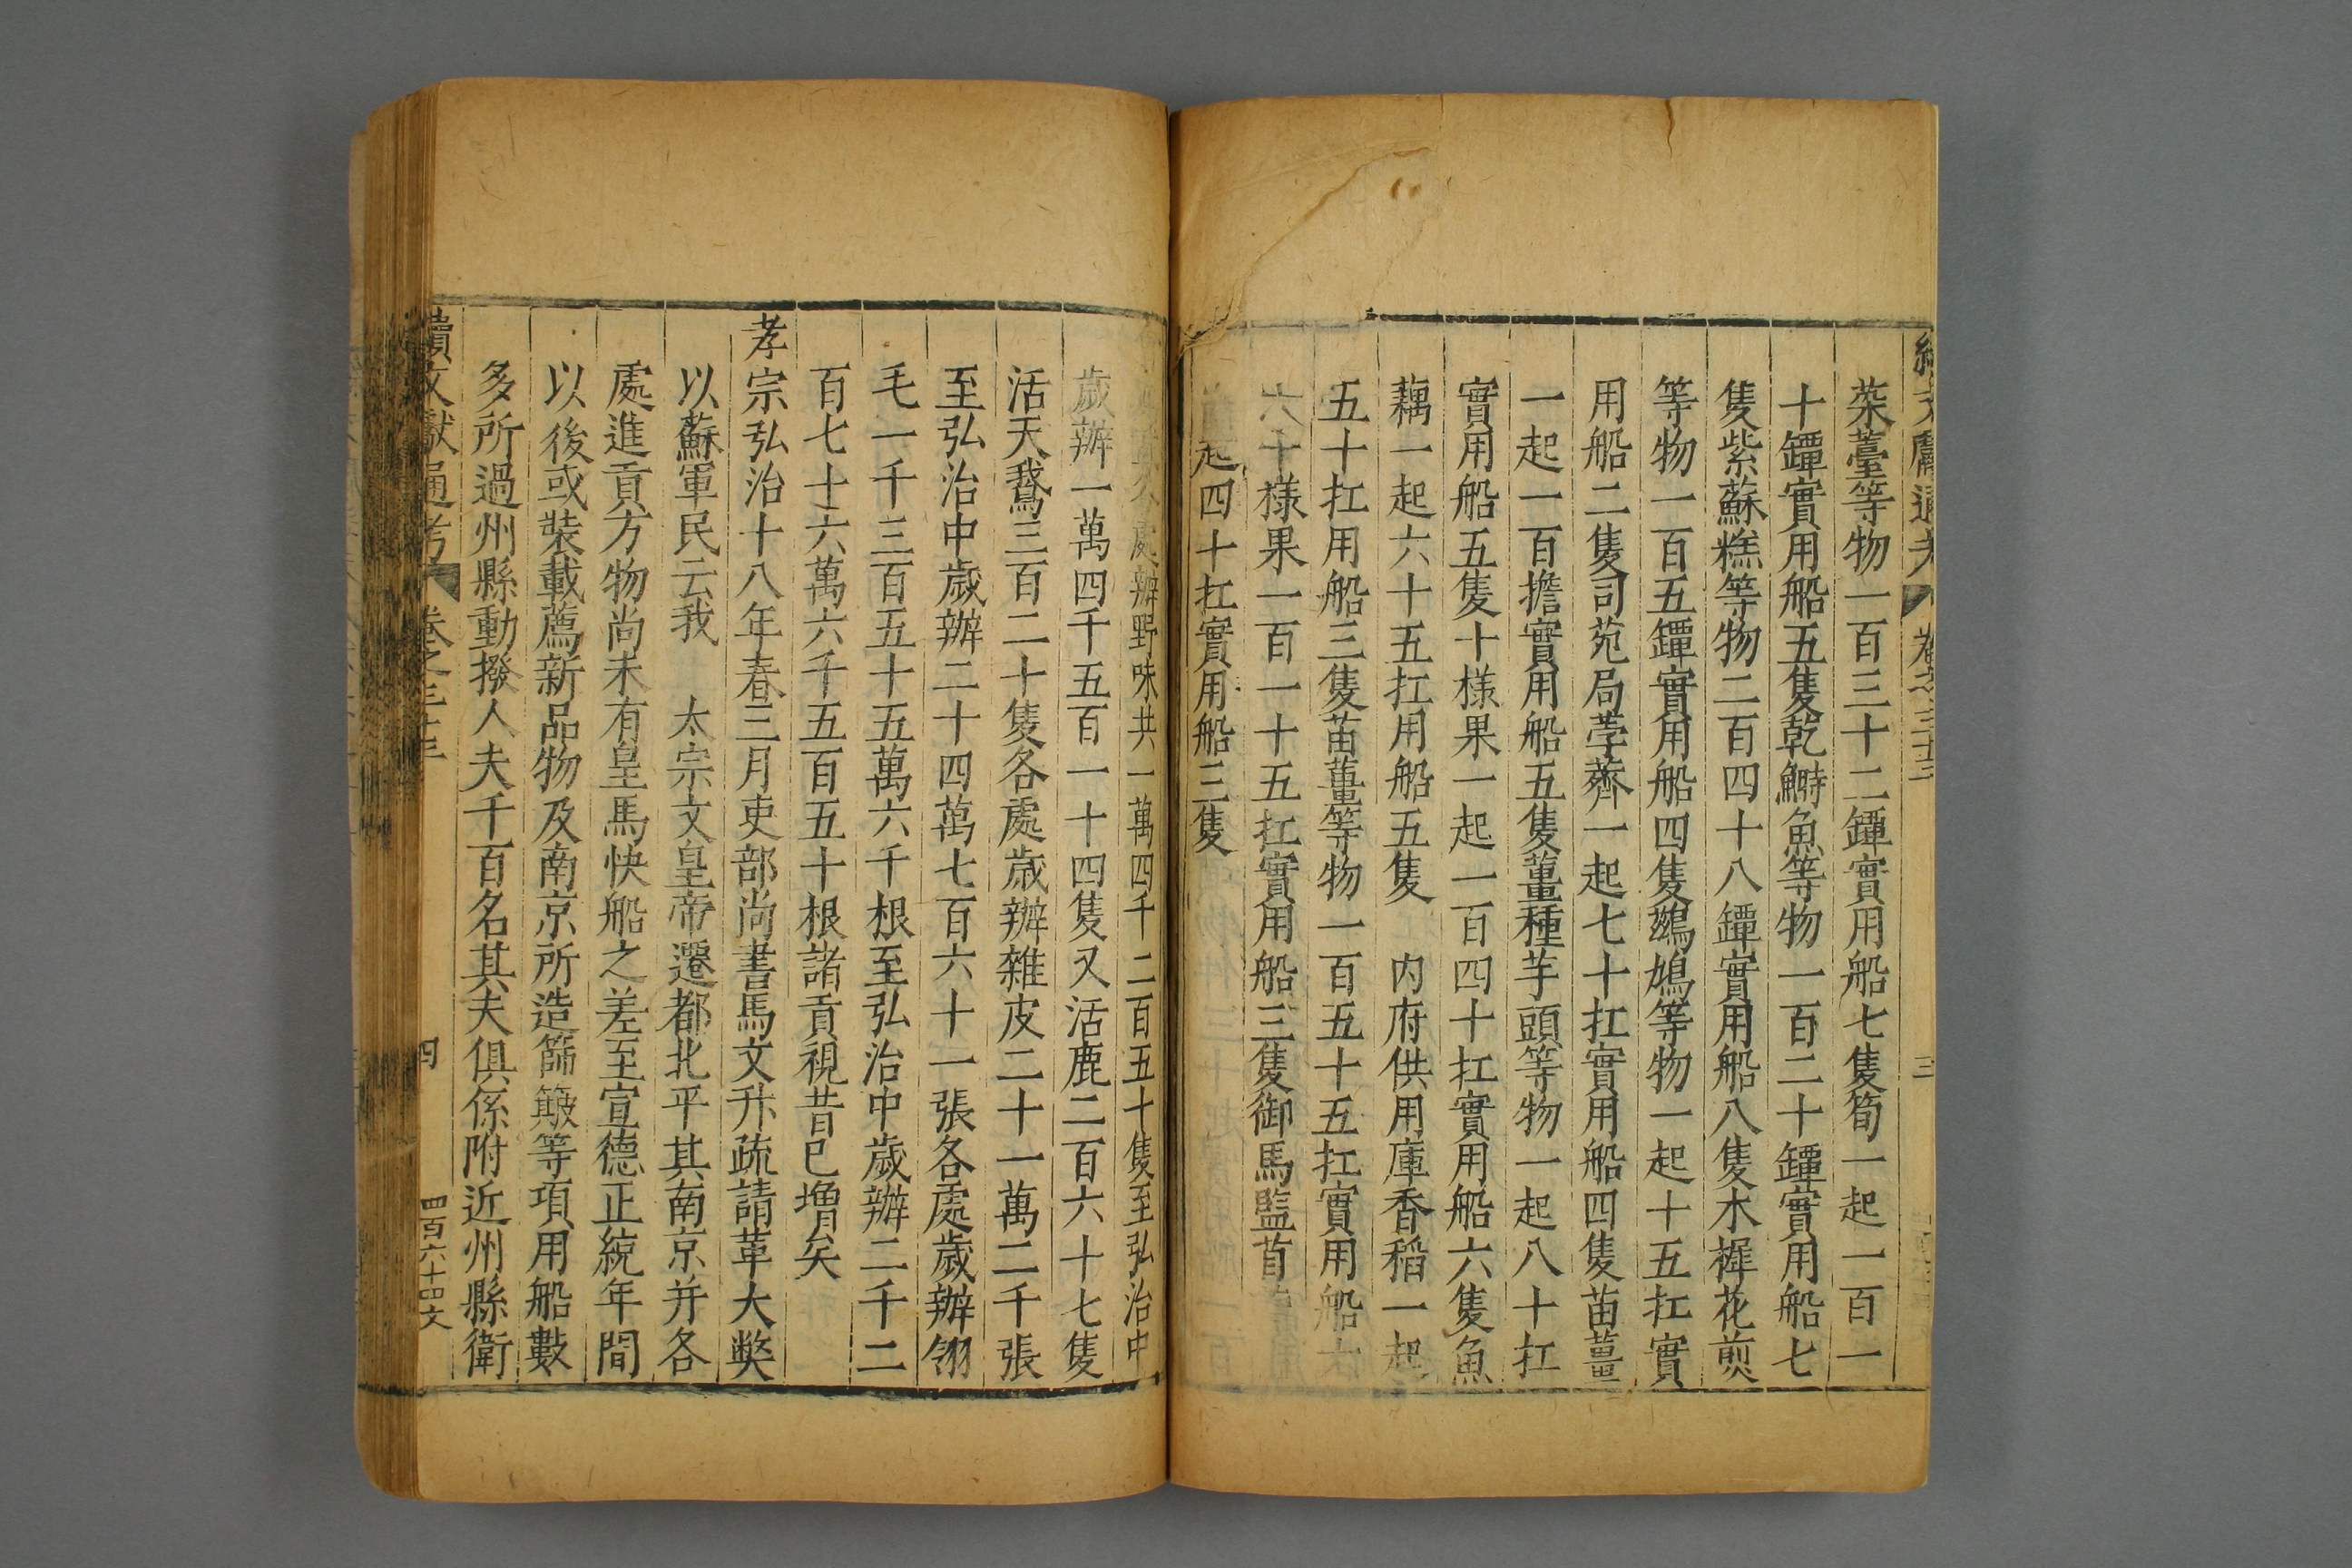 續文獻通考 卷之三十三 三
菜薹等物一百三十二罈實用船七隻筍一起一百一
十罈實用船五隻乾鰣魚等物一百二十罈實用船七
隻紫蘇糕等物二百四十八罈實用船八隻木樨花煎
等物一百五罈實用船四隻鷀鳩等物一起十五扛實
用船二隻司苑局荸薺一起七十扛實用船四隻苗薑
一起一百擔實用船五隻薑種芋頭等物一起八十扛
實用船五隻十樣果一起一百四十扛實用船六隻魚
藕一起六十五扛用船五隻 内府供用庫香稻一起
五十扛用船三隻苗薑等物一百五十五扛實用船六
六十樣果一百一十五扛實用船三隻御馬監苜
起四十扛實用船三隻
處辦野味共一萬四千二百五十隻至弘治中
歲辦一萬四千五百一十四隻又活鹿二百六十七隻
活天鵞三百二十隻各處歲辦雜皮二十一萬二千張
至弘治中歲辦二十四萬七百六十一張各處歲辦翎
毛一千三百五十五萬六千根至弘治中歲辦二千二
百七十六萬六千五百五十根諸貢視昔已增矣
孝宗弘治十八年春三月吏部尚書馬文升疏請革大獘
以蘇軍民云我 太宗文皇帝遷都北平其南京并各
處進貢方物尚未有皇馬快船之差至宣德正統年間
以後或裝載薦新品物及南京所造篩簸等項用船數
多所過州縣動撥人夫千百名其夫俱係附近州縣衛
續文獻通考 卷之三十三 四 四百六十四文